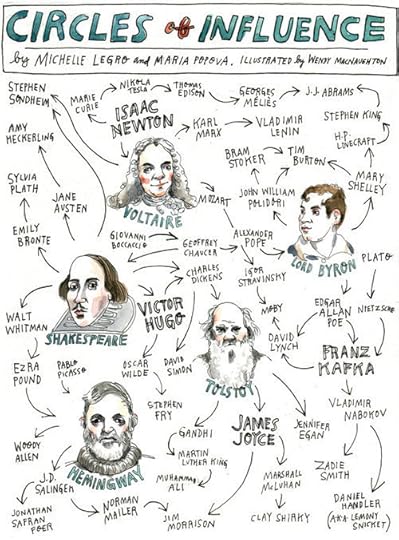 CIRCLES of INFLUENCE
by MICHELLE LEGRO and MARIA POPOVA, ILLUSTRATED by WENDY MACNAUGHTON
STEPHEN
SONDHEIM
MARIE
CURIE
NIKOLA
TESLA
THOMAS
EDISON
GEORGES
MÉLIÈS
J.J. ABRAMS
ISAAC
NEWTON
KARL
MARX
VLADIMIR
LENIN
STEPHEN KING
AMY
HECKERLING
H.P.
LOVECRAFT
BRAM
STOKER
TIM
BURTON
SYLVIA
PLATH
JANE
AUSTEN
VOLTAIRE
MOZART
JOHN WILLIAM
POLIDORI
MARY
SHELLEY
EMILY
BRONTE
GIOVANNI
BOCCACCIO
GEOFFREY
CHAUCER
ALEXANDER
POPE
LORD BYRON
PLATO
CHARLES
DICKENS
IGOR
STRAVINSKY
WALT
WHITMAN
SHAKESPEARE
VICTOR
HUGO
TOLSTOY
MOBY
EDGAR
ALLAN
POE
NIETZSCHE
DAVID
LYNCH
FRANZ
KAFKA
EZRA
POUND
PABLO
PICASSO
OSCAR
WILDE
DAVID
SIMON
STEPHEN
FRY
VLADIMIR
NABOKOV
WOODY
ALLEN
HEMINGWAY
GANDHI
JAMES
JOYCE
JENNIFER
EGAN
MARTIN
LUTHER KING
ZADIE
SMITH
J.D.
SALINGER
MUHAMMAD
ALI
MARSHALL
McLUHAN
JONATHAN
SAFRAN
FOER
NORMAN
MAILER
JIM
MORRISON
CLAY SHIRKY
DANIEL
HANDLER
(AKA LEMONY
SNICKET)